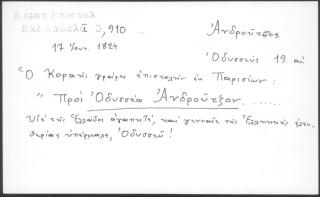 Κοραή Επιστολ
Εκδ Δαμαλᾶ 3,910
17 Ἰουν. 1824
Ἀνδροῦτσος
Ὀδυσσεύς 19. αἰ.
Ὁ Κοραῆς γράφει ἐπιστολήν ἐκ Παρισίων.
"Πρός Ὀδυσσέα Ἀνδροῦτζον. ......
Υἱέ τῆς Ἑλλάδος ἀγαπητέ, καί γενναῖε τῆς Ἑλληνικῆς ἐλευ-
θερίας ὑπέρμαχε, Ὀδυσσεῦ!